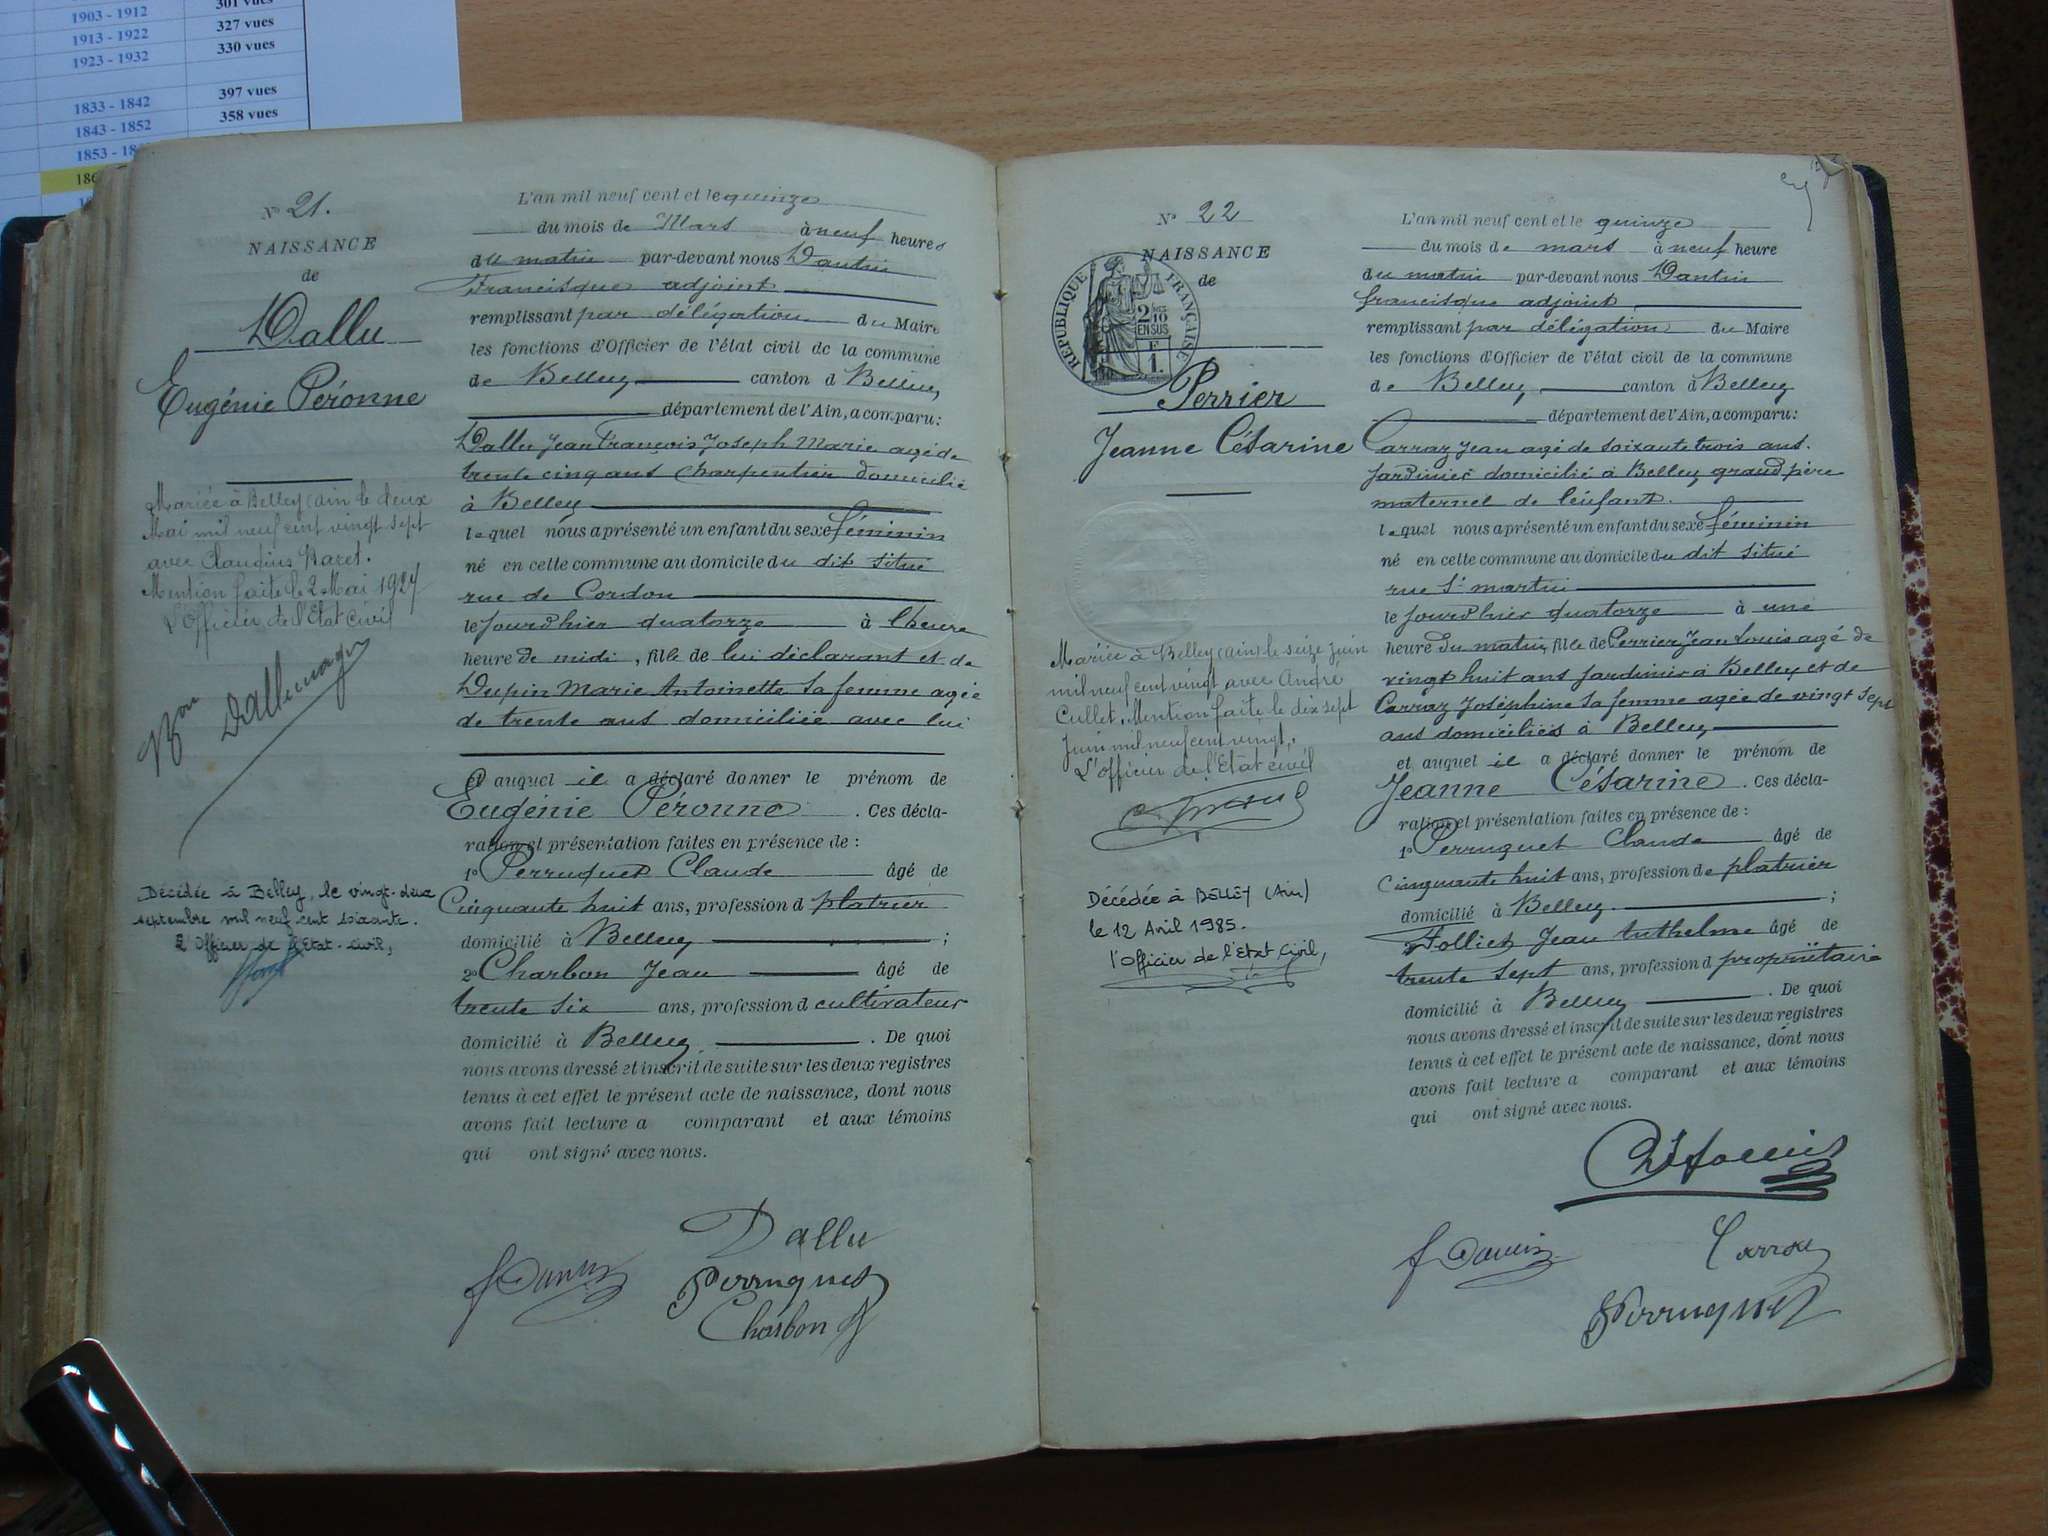 301 vues
1903 - 1912 327 vues
1913 - 1922 330 vues
1923 - 1932
397 vues
1833 - 1842 358 vues
1843 - 1852
1853 - 18
186
N° 21.
NAISSANCE
de
Dallu
Eugénie Péronne
Mariée à Belley (Ain) le deux
Mai mil neuf cent vingt sept
avec Claudius
Mention faite le 2 Mai 1927
L'Officier de l'Etat civil
Dallemagne
Décédée à Belley, le vingt-deux
septembre mil neuf cent soixante.
L'Officier de l'Etat-civil,
L'an mil neuf cent et le quinze
du mois de Mars à neuf heures
du matin par-devant nous Dantin
Francisque adjoint
remplissant par délégation du Maire
les fonctions d'Officier de l'état civil de la commune
de Belley canton d Belley
département de l'Ain, a comparu:
Dallu Jean François Joseph Marie agé de
trente cinq ans charpentier domicilié
à Belley
lequel nous a présenté un enfant du sexe féminin
né en cette commune au domicile du dit situé
rue de Cordon
le jourd'hier quatorze à l'heure
heure de midi, fille de lui déclarant et de
Dupin Marie Antoinette sa femme agée
de trente ans domiciliée avec lui
et auquel il a déclaré donner le prénom de
Eugénie Péronne. Ces décla-
ration et présentation faites en présence de :
1° Perruquet Claude âgé de
Cinquante huit ans, profession d platrier
domicilié à Belley ;
2° Charbon Jean âgé de
trente six ans, profession d cultivateur
domicilié à Belley. De quoi
nous avons dressé et inscrit de suite sur les deux registres
tenus à cet effet le présent acte de naissance, dont nous
avons fait lecture a comparant et aux témoins
qui ont signé avec nous.
Dallu
f Dantin Perruquet
Charbon
N° 22
NAISSANCE
de
RÉPUBLIQUE FRANÇAISE
2 10
EN SUS
F
1.
Perrier
Jeanne Césarine
Mariée à Belley (Ain) le seize juin
mil neuf cent vingt avec André
Cullet. Mention faite le dix sept
Juin mil neuf cent vingt.
L'officier de l'Etat civil
Décédée à Belley (Ain)
le 12 Avril 1985.
l'Officier de l'Etat Civil,
L'an mil neuf cent et le quinze
du mois de mars à neuf heure
du matin par-devant nous Dantin
francisque adjoint
remplissant par délégation du Maire
les fonctions d'Officier de l'état civil de la commune
de Belley, canton d Belley
département de l'Ain, a comparu:
Carraz Jean agé de soixante trois ans.
Jardinier domicilié à Belley grand père
maternel de l'enfant.
lequel nous a présenté un enfant du sexe féminin
né en cette commune au domicile du dit situé
rue St martin
le jourd'hier quatorze à une
heure du matin, fille de Perrier Jean Louis agé de
vingt huit ans Jardinier à Belley et de
Carraz Joséphine sa femme agée de vingt sept
ans domiciliés à Belley
et auquel il a déclaré donner le prénom de
Jeanne Césarine. Ces décla-
ration et présentation faites en présence de :
1° Perruquet Claude âgé de
Cinquante huit ans, profession de platrier
domicilié à Belley ;
2° Folliet Jean Anthelme âgé de
trente sept ans, profession d propriétaire
domicilié à Belley. De quoi
nous avons dressé et inscrit de suite sur les deux registres
tenus à cet effet le présent acte de naissance, dont nous
avons fait lecture a comparant et aux témoins
qui ont signé avec nous.
f Dantin Carraz
Perruquet